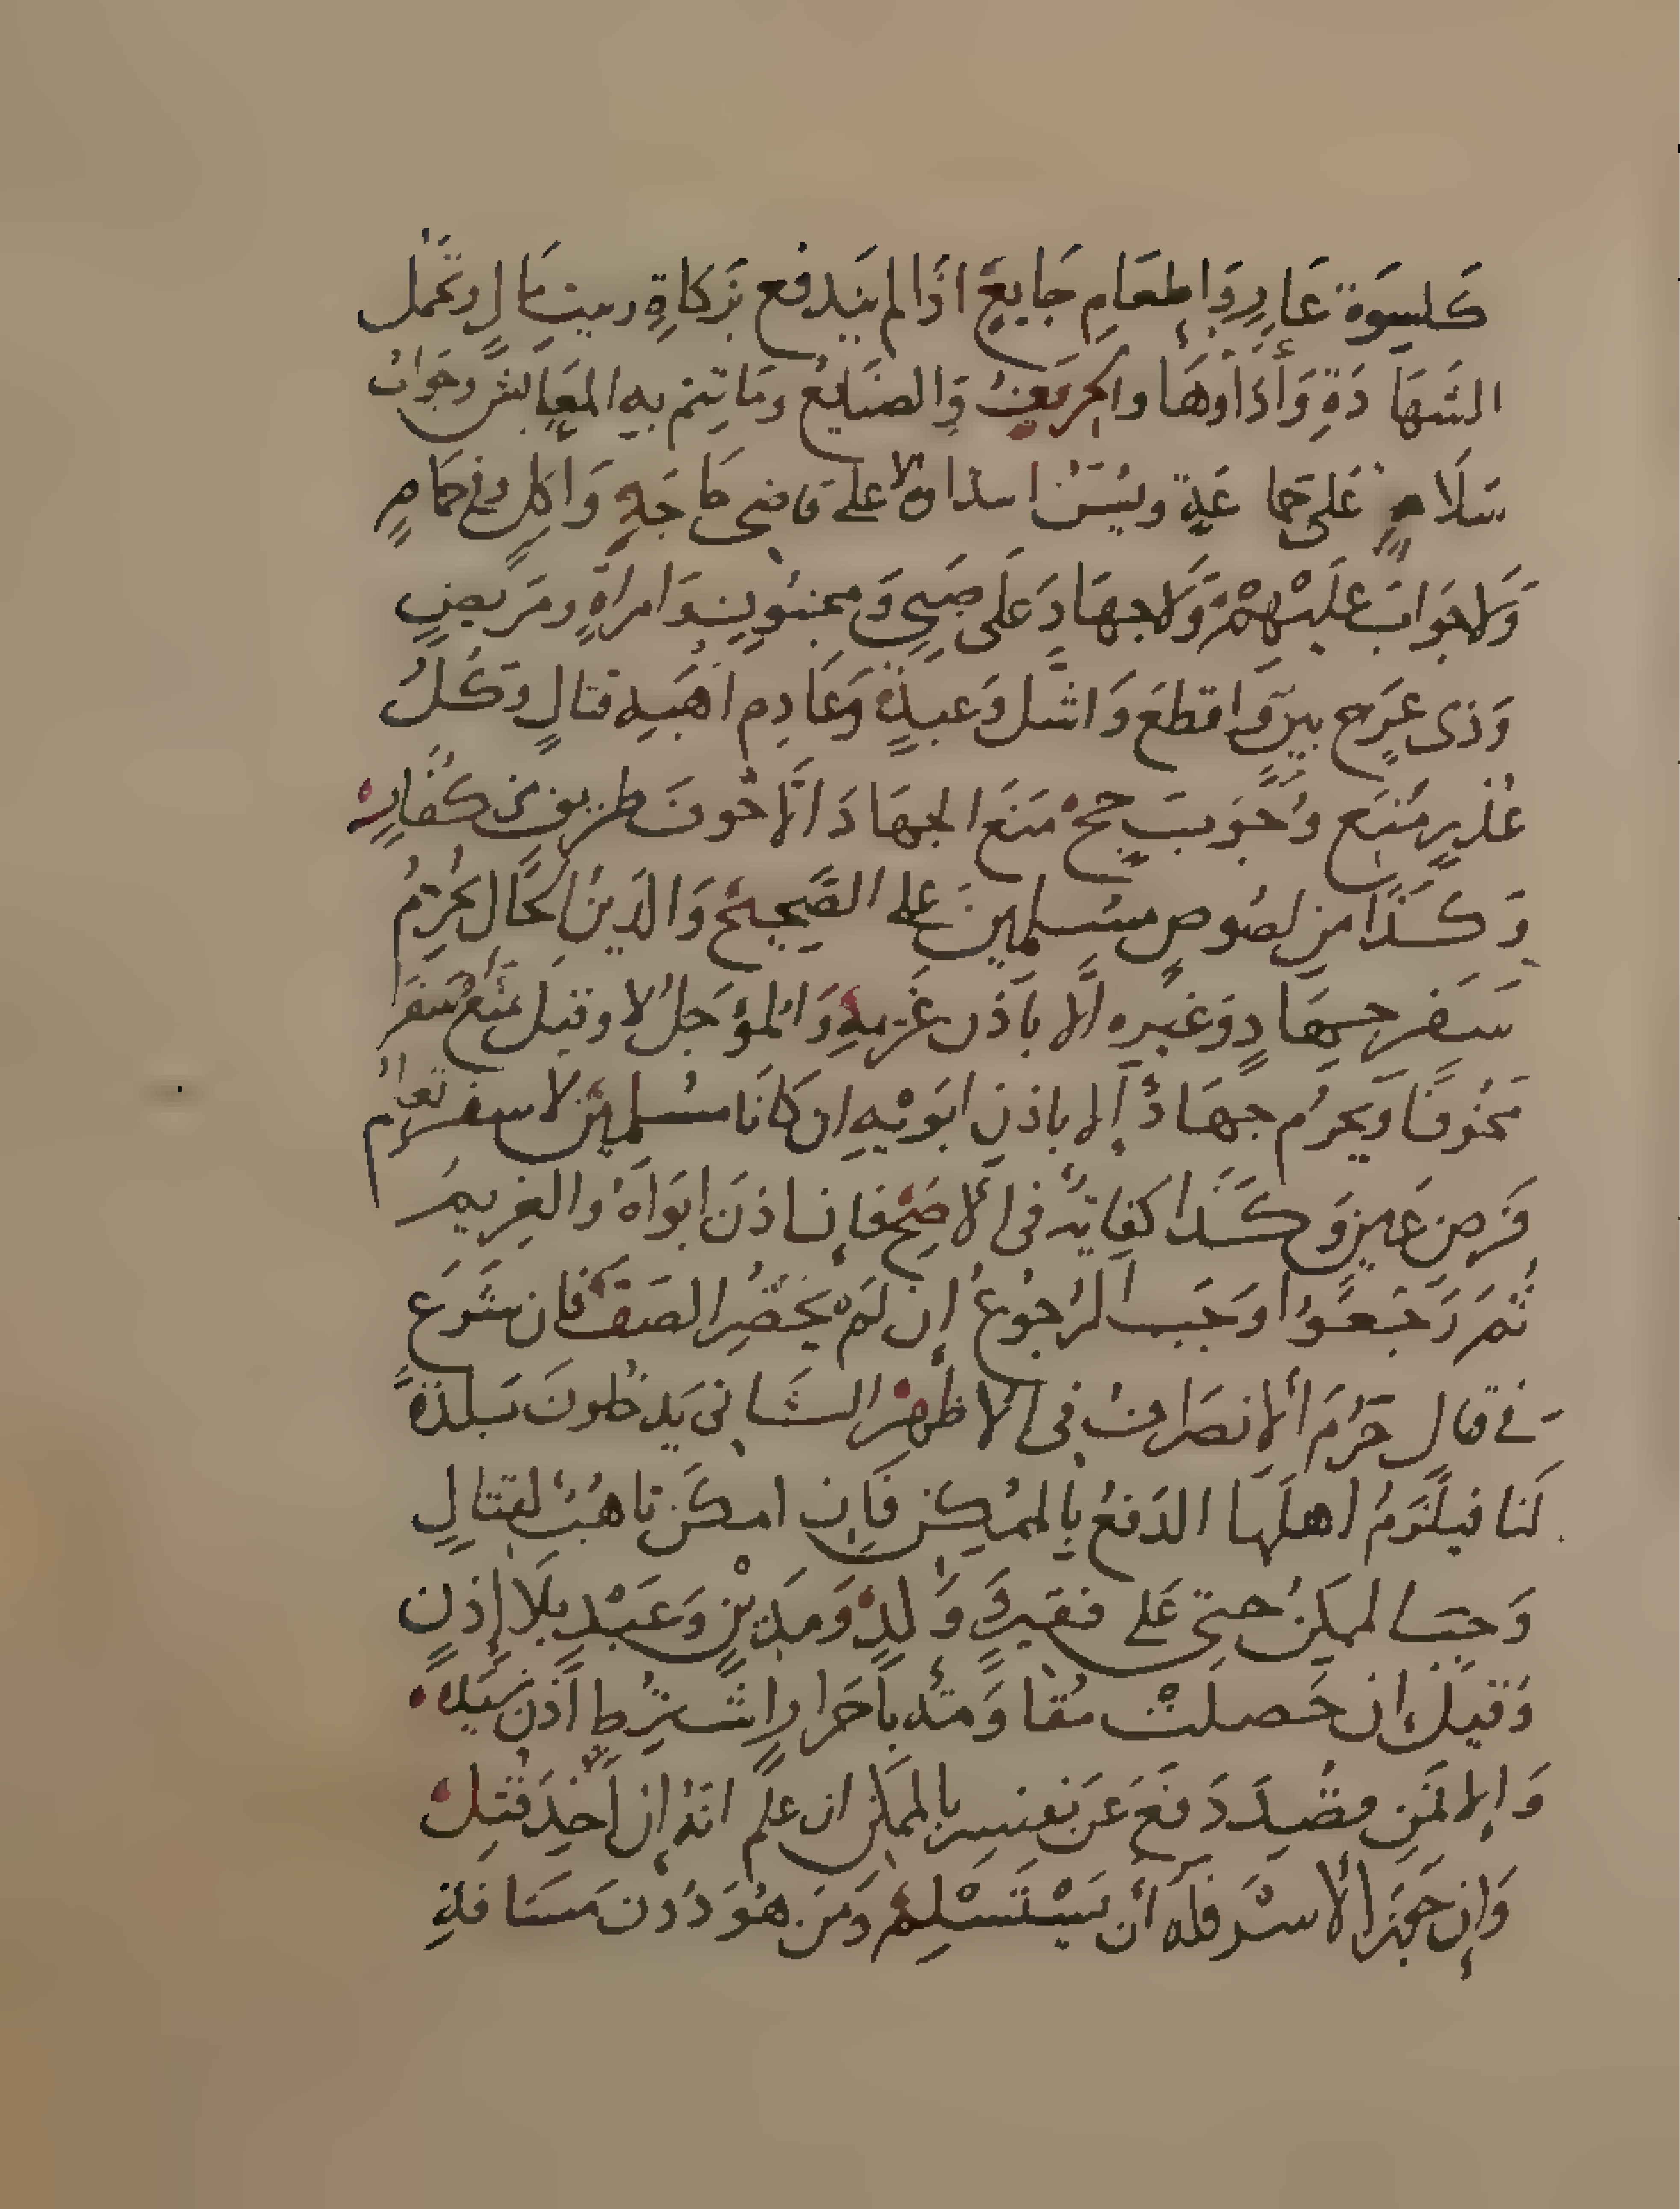 كَكِسوَة عَارٍ وَإِطعَامِ جَايِعٍ اذَا لم يَندفع بزَكاةٍ وبيتِ مَالٍ وتحَمل
الشهَادَةِ وَأدَاوهَا والحِرَفِ وَالصنَايِع ومَا تتم به المعَايش وجَوَاب
سَلَامٍ عَلى جماعَةٍ ويُسَنُّ ابتداوه لا علَى قاضى حَاجَةٍ وَاكِلٍ وفي حمامٍ
وَلا جَوَابَ عَليْهمْ وَلا جهَادَ عَلَى صَبيٍ وَمجنُونٍ وَامراةٍ ومَرِيضٍ
وَذى عرَجٍ بينٍ وَاقطعَ وَاشل وَعبدٍ وَعَادِمِ اهبَةِ قتالٍ وَكلُ
عُذرٍ منعَ وُجُوبَ حجٍ مَنَعَ الجهَادَ الّا خوفَ طريق من كفارٍ
وَكَذَا من لصُوصٍ مسلمين على الصَّحِيح وَالدَين الحَال يُحَرِّمُ
سَفر جهَادٍ وَغيرِه الّا باذن غَريمه وَالمؤجلُ لا وقيل يمنَعُ سَفرَا
مَخُوفًا وَيحرُم جهَادٌ إلا باذنِ ابَوَيْهِ ان كانَا مسُلمين لا سفر تعلم
فَرض عَينٍ وَكَذَا كفايَة في الاصَح فإن اذنَ ابوَاهُ والغريم
ثُم رَجَعُوا وَجَب الرُجُوعُ إن لَمْ يَحضُر الصَف فان شَرَعَ
في قتال حَرُمَ الانصرَافُ في الاظهر الثَاني يَدخلونَ بَلدَة
لنا فيلزَمُ اهلهَا الدَفعُ بِالممكن فَإِن امكن تاهب لقتال
وَجَب الممكنُ حتى عَلى فقيرٍ وَوَلدٍ وَمَدينٍ وَعَبْدٍ بِلَا إذنٍ
وَقيل إن حَصلتْ مُقاوَمَة باَحرارٍ اشترُط اذن سَيده
وَإلا فمَن قصُدَ دَفعَ عَن نفسه بالممكن ان علم انهُ إن أُخذَ قُتِل
وَإن جَوَّزَ الأسْرَ فله أن يَسْتَسْلِمَ وَمَن هُوَ دُون مَسَافةِ